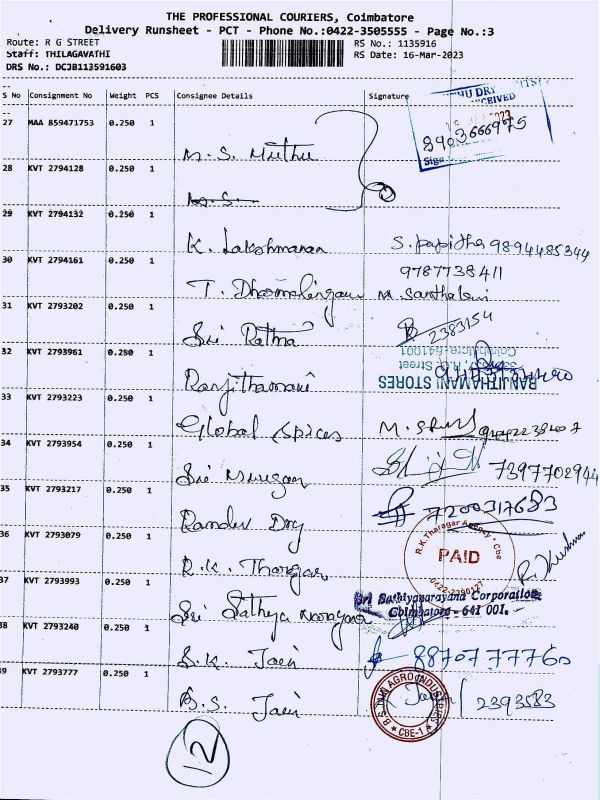 THE PROFESSIONAL COURIERS, Coimbatore
Delivery Runsheet - PCT - Phone No.:0422-3505555 - Page No.:3
Route: R G STREET
RS No.: 1135916
Staff: THILAGAVATHI
RS Date: 16-Mar-2023
DRS No.: DCJB113591603
S No Consignment No Weight PCS Consignee Details Signature
27 MAA 859471753 0.250 1
M. S. Muthu
8903666975
28 KVT 2794128 0.250 1
M.S.
29 KVT 2794132 0.250 1
K. Lakshmanan S. Papitha 9894485344
30 KVT 2794161 0.250 1
9787738411
T. Dharmalingam M. Santhalini
31 KVT 2793202 0.250 1
Sri Ratna 2383154
32 KVT 2793961 0.250 1
Coimbatore-641001
Ranjithamani RANJITHAMANI STORES
33 KVT 2793223 0.250 1
Global Spices
34 KVT 2793954 0.250 1
Sri Murugan 7397702944
35 KVT 2793217 0.250 1
Ramdev Dry 7200317683
36 KVT 2793079 0.250 1
R.K. Tharagar Agency * Cbe
PAID
0422-2390127
R.K. Tharagar
37 KVT 2793993 0.250 1
Sri Sathyanarayana Corporation
Coimbatore - 641 001.
Sri Sathya Narayana
38 KVT 2793240 0.250 1
S.K. Jain 8870777760
39 KVT 2793777 0.250 1
AGRO INDUSTRIES
CBE-1
B.S. Jain 2393583
12